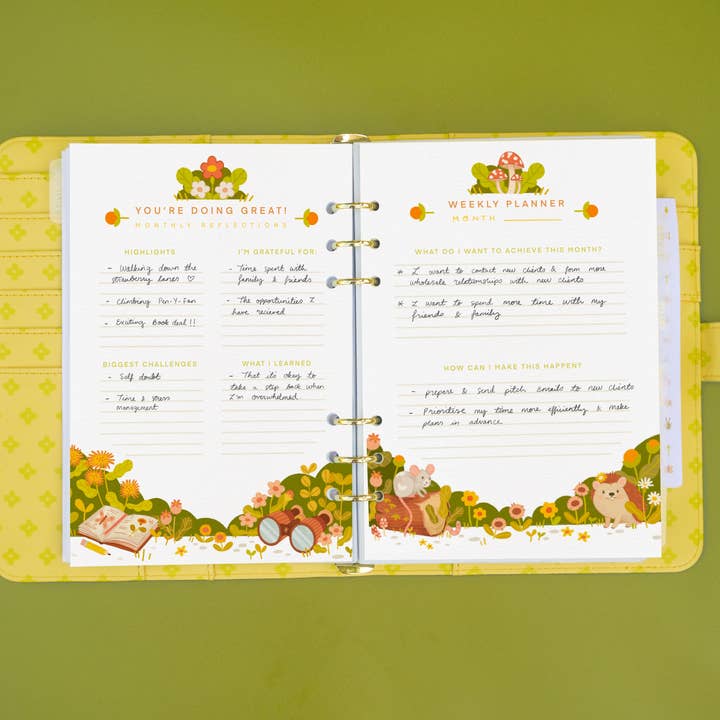 YOU'RE DOING GREAT!
MONTHLY REFLECTIONS
HIGHLIGHTS
- Walking down the
strawberry lanes ♡
- Climbing Pen-Y-Fan
- Exciting Book deal!!
I'M GRATEFUL FOR:
- Time spent with
family & friends
- The opportunities I
have recieved
BIGGEST CHALLENGES
- Self doubt
- Time & stress
management
WHAT I LEARNED
- That it's okay to
take a step back when
I'm overwhelmed
WEEKLY PLANNER
MONTH
WHAT DO I WANT TO ACHIEVE THIS MONTH?
* I want to contact new clients & form more
wholesale relationships with new clients
* I want to spend more time with my
friends & family
HOW CAN I MAKE THIS HAPPEN?
- prepare & send pitch emails to new clients
- Prioritise my time more efficiently & make
plans in advance